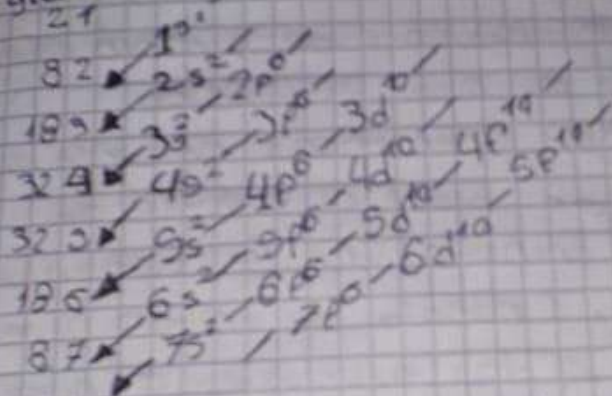 2 1 1s²
8 2 2s² 2p⁶
18 3 3s² 3p⁶ 3d¹⁰
32 4 4s² 4p⁶ 4d¹⁰ 4f¹⁴
32 5 5s² 5p⁶ 5d¹⁰ 5f¹⁴
18 6 6s² 6p⁶ 6d¹⁰
8 7 7s² 7p⁶